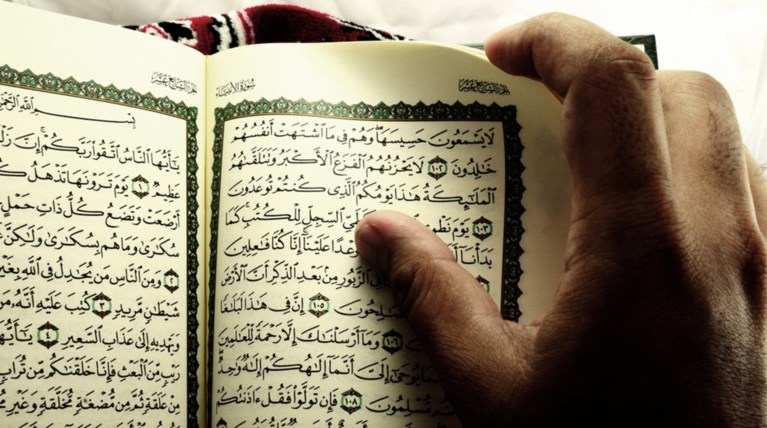 الجزء السابع عشر
سورة الأنبياء
لَا يَسْمَعُونَ حَسِيسَهَا وَهُمْ فِي مَا ٱشْتَهَتْ أَنفُسُهُمْ
خَٰلِدُونَ ١٠٢ لَا يَحْزُنُهُمُ ٱلْفَزَعُ ٱلْأَكْبَرُ وَتَتَلَقَّىٰهُمُ
ٱلْمَلَٰٓئِكَةُ هَٰذَا يَوْمُكُمُ ٱلَّذِي كُنتُمْ تُوعَدُونَ
١٠٣ يَوْمَ ٱلسِّجِلِّ لِلْكُتُبِ كَمَا
بَدَأْنَآ وَعْدًا عَلَيْنَآ إِنَّا كُنَّا فَٰعِلِينَ
فِي ٱلزَّبُورِ مِنۢ بَعْدِ ٱلذِّكْرِ أَنَّ ٱلْأَرْضَ
١٠٥ إِنَّ فِي هَٰذَا لَبَلَٰغًا
١٠٦ وَمَآ أَرْسَلْنَٰكَ إِلَّا رَحْمَةً لِّلْعَٰلَمِينَ
يُوحَىٰٓ إِلَيَّ أَنَّمَآ إِلَٰهُكُمْ إِلَٰهٌ وَٰحِدٌ
مُّسْلِمُونَ ١٠٨ فَإِن تَوَلَّوْا۟ فَقُلْ ءَاذَنتُكُمْ
الجزء السابع عشر
بِسْمِ ٱللَّهِ ٱلرَّحْمَٰنِ
يَٰٓأَيُّهَا ٱلنَّاسُ ٱتَّقُوا۟ رَبَّكُمْ إِنَّ
عَظِيمٌ ١ يَوْمَ تَرَوْنَهَا تَذْهَلُ
أَرْضَعَتْ وَتَضَعُ كُلُّ ذَاتِ حَمْلٍ
سُكَٰرَىٰ وَمَا هُم بِسُكَٰرَىٰ وَلَٰكِنَّ
٢ وَمِنَ ٱلنَّاسِ مَن يُجَٰدِلُ فِي ٱللَّهِ بِغَيْرِ
شَيْطَٰنٍ مَّرِيدٍ ٣ كُتِبَ عَلَيْهِ أَنَّهُۥ مَن
وَيَهْدِيهِ إِلَىٰ عَذَابِ ٱلسَّعِيرِ ٤ يَٰٓأَيُّهَا
رَيْبٍ مِّنَ ٱلْبَعْثِ فَإِنَّا خَلَقْنَٰكُم مِّن تُرَابٍ
مِنْ عَلَقَةٍ ثُمَّ مِن مُّضْغَةٍ مُّخَلَّقَةٍ وَغَيْرِ